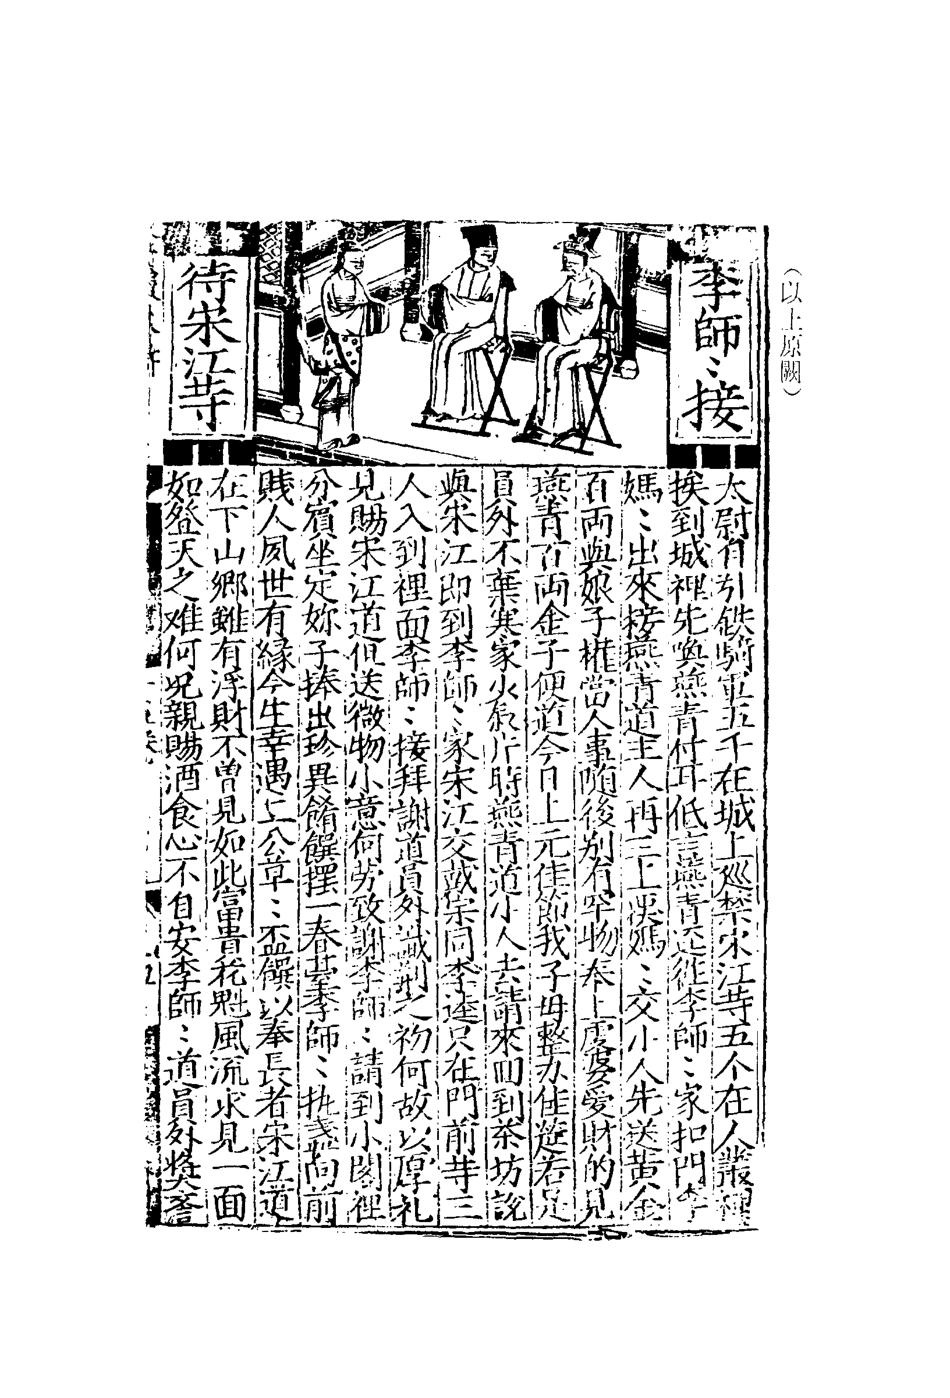 （以上原闕）
李師〻接
待宋江䒭
太尉自引鉄騎軍五千在城上廵禁宋江䒭五个在人叢裡
挨到城裡先喚燕青付耳低言燕青迳往李師〻家扣門李
媽〻出來接燕青道主人再三上媽〻交小人先送黄金
百両與娘子權當人事随後别有罕物奉上虔婆愛財的見
燕青百両金子便道今日上元佳節我子母整办佳筵若是
員外不棄寒家少叙片時燕青道小人去請來囬到茶坊說
與宋江即到李師〻家宋江交戴宗同李逵只在門前䒭三
人入到裡面李師〻接拜謝道員外識荆之初何故以厚礼
見賜宋江道但送微物小意何劳致謝李師〻請到小閣裡
分賓坐定妳子捧出珍異餚饌擺一春臺李師〻执盞向前
賎人夙世有緣今生幸遇二公草〻盃饌以奉長者宋江道
在下山鄉雖有浮財不曽見如此富貴花魁風流求見一面
如登天之难何况親賜酒食心不自安李師〻道員外奬譽